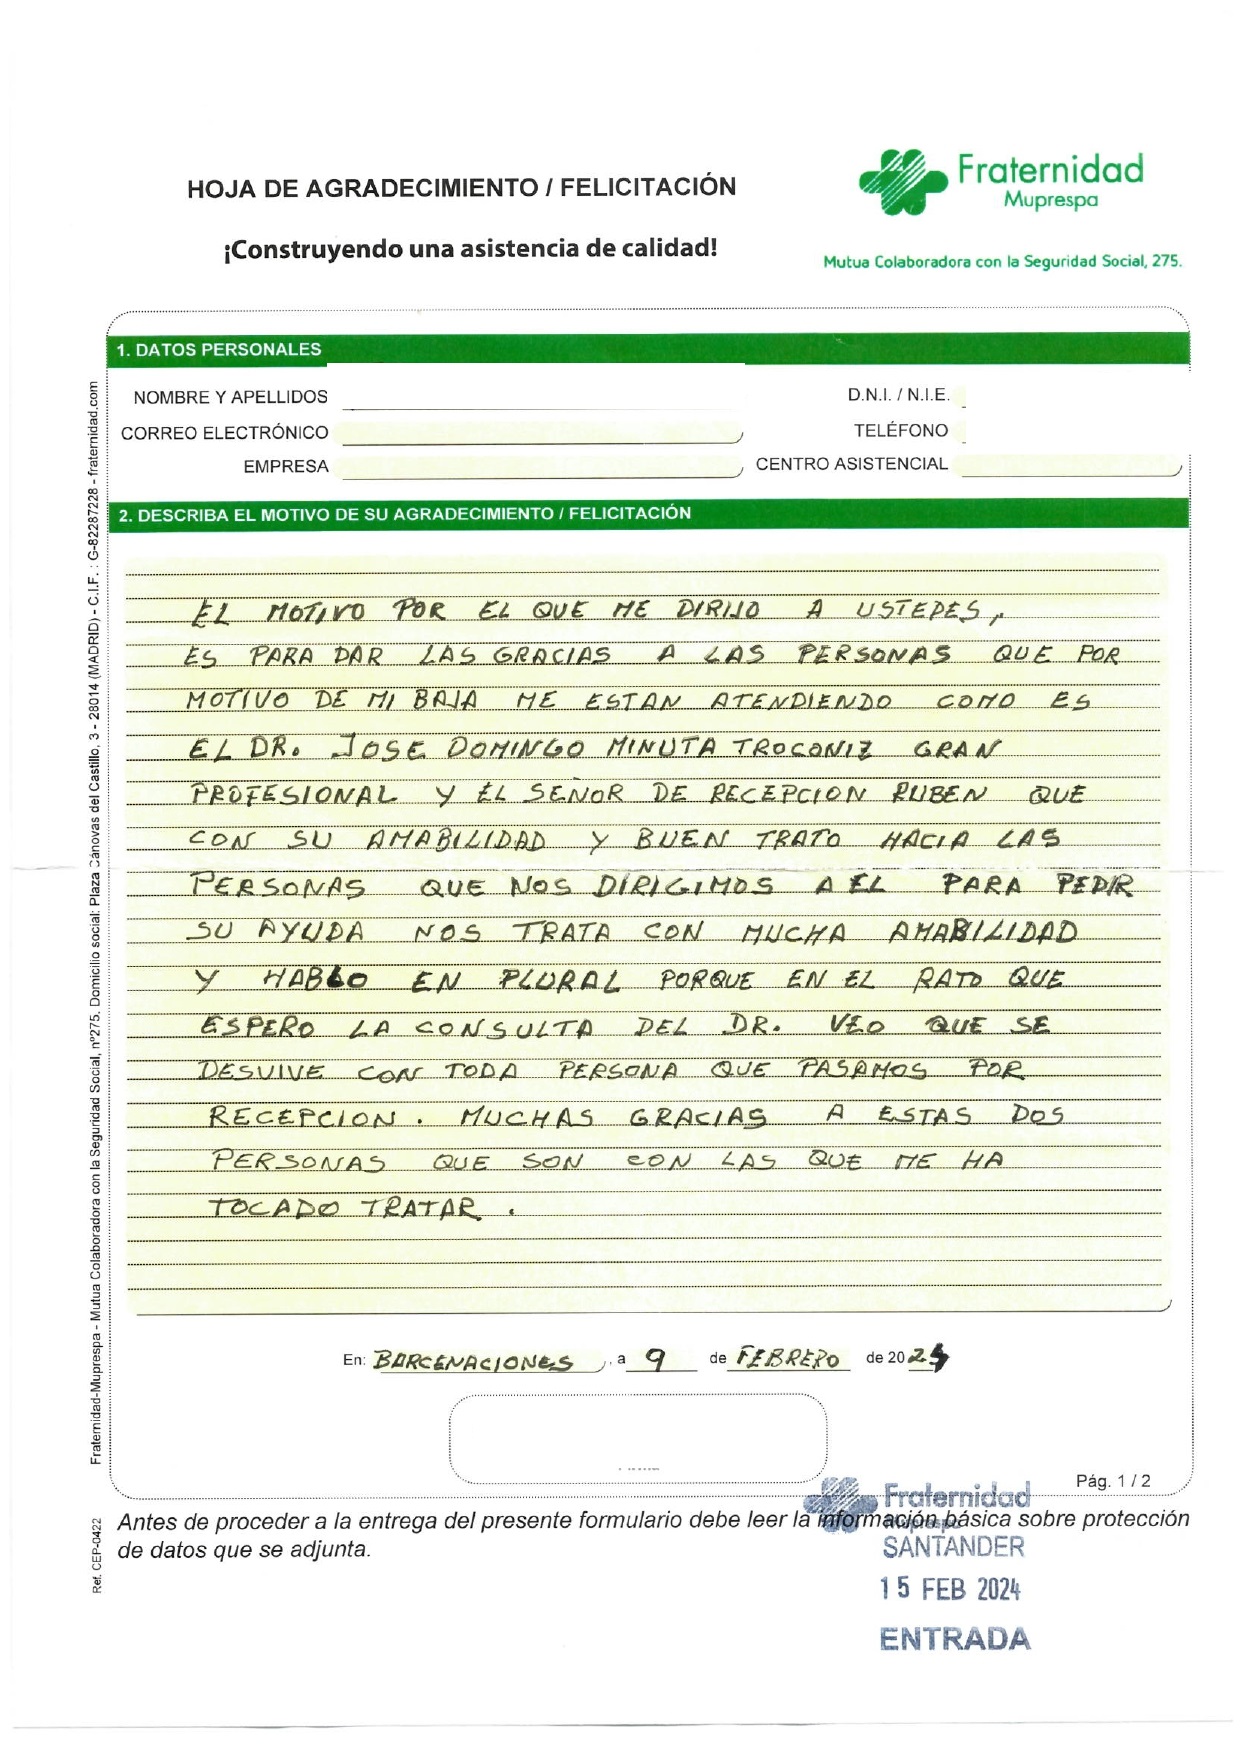 HOJA DE AGRADECIMIENTO / FELICITACIÓN
¡Construyendo una asistencia de calidad!
Fraternidad
Muprespa
Mutua Colaboradora con la Seguridad Social, 275.
1. DATOS PERSONALES
NOMBRE Y APELLIDOS
D.N.I. / N.I.E.
CORREO ELECTRÓNICO
TELÉFONO
EMPRESA
CENTRO ASISTENCIAL
2. DESCRIBA EL MOTIVO DE SU AGRADECIMIENTO / FELICITACIÓN
EL MOTIVO POR EL QUE ME DIRIJO A USTEDES,
ES PARA DAR LAS GRACIAS A LAS PERSONAS QUE POR
MOTIVO DE MI BAJA ME ESTAN ATENDIENDO COMO ES
EL DR. JOSE DOMINGO MINUTA TROCONIZ GRAN
PROFESIONAL Y EL SEÑOR DE RECEPCION RUBEN QUE
CON SU AMABILIDAD Y BUEN TRATO HACIA LAS
PERSONAS QUE NOS DIRIGIMOS A EL PARA PEDIR
SU AYUDA NOS TRATA CON MUCHA AMABILIDAD
Y HABLO EN PLURAL PORQUE EN EL RATO QUE
ESPERO LA CONSULTA DEL DR. VEO QUE SE
DESVIVE CON TODA PERSONA QUE PASAMOS POR
RECEPCION. MUCHAS GRACIAS A ESTAS DOS
PERSONAS QUE SON CON LAS QUE ME HA
TOCADO TRATAR.
En: BARCENACIONES, a 9 de FEBRERO de 2024
Pág. 1 / 2
Antes de proceder a la entrega del presente formulario debe leer la información básica sobre protección
de datos que se adjunta.
Fraternidad
Muprespa
SANTANDER
15 FEB 2024
ENTRADA
Fraternidad-Muprespa - Mutua Colaboradora con la Seguridad Social, nº275. Domicilio social: Plaza Cánovas del Castillo, 3 - 28014 (MADRID) - C.I.F. : G-82287228 - fraternidad.com
Ref. CEP-0422